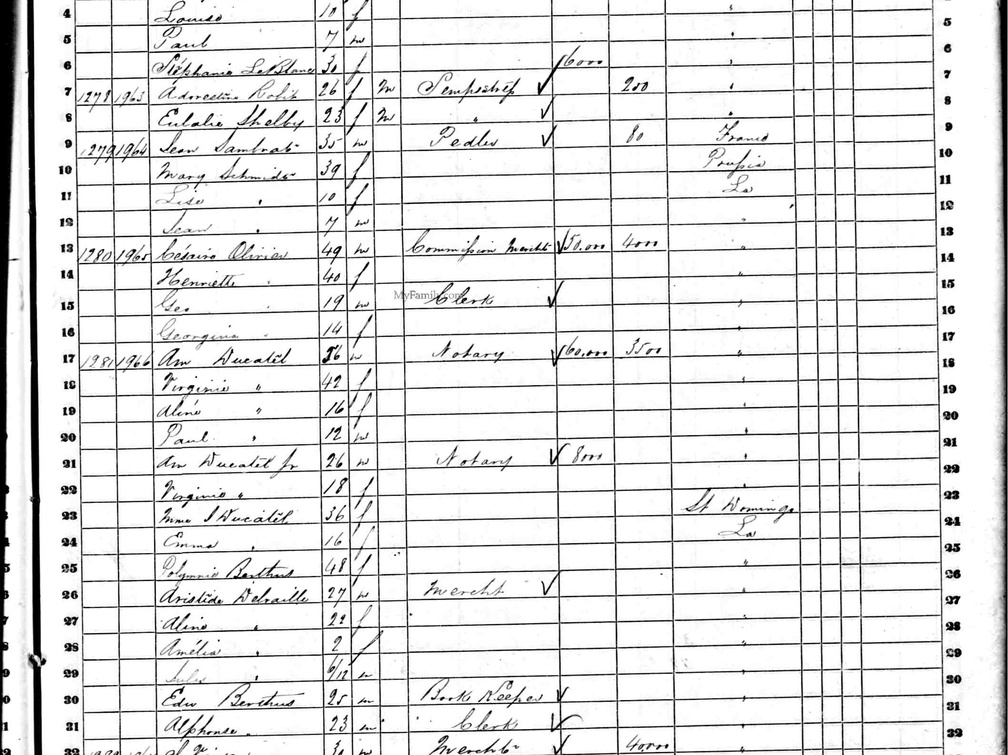 4 Louise 10 f " 5
5 Paul 7 m " 6
6 Stéphanie LeBlanc 30 f 6000 " 7
7 1278 1963 26 f M Sempstress 200 " 8
8 Eulalie Shelby 23 f M " " 9
9 1279 1964 Jean 35 m Pedler 80 France 10
10 Mary Schmidt 39 f Prussia 11
11 Lise " 10 f La 12
12 Jean " 7 m " 13
13 1280 1965 Césaire Olivier 49 m Commission Mercht 50.000 4000 " 14
14 Henriette " 40 f "
15 Geo " 19 m Clerk " 16
16 Georgina " 14 f 17
17 1281 1966 Am Ducatél 56 m Notary 60.000 3500 " 18
18 Virginie " 42 f " 19
19 Aline " 16 f " 20
20 Paul " 12 m " 21
21 Am Ducatél Jr 26 m Notary 8000 " 22
22 Virginie " 18 f " 23
23 Mme Ducatél 36 f St Domingo 24
24 Emma " 16 f La 25
25 Polymnie Berthus 48 f " 26
26 Aristide 27 m Mercht " 27
27 Aline " 22 f " 28
28 Amélia " 2 f " 29
29 Jules " 6/12 m " 30
30 Edw Berthus 25 m Book Keeper " 31
31 Alphonse " 23 m Clerk " 32
32 30 m Mercht 40000
MyFamily.com